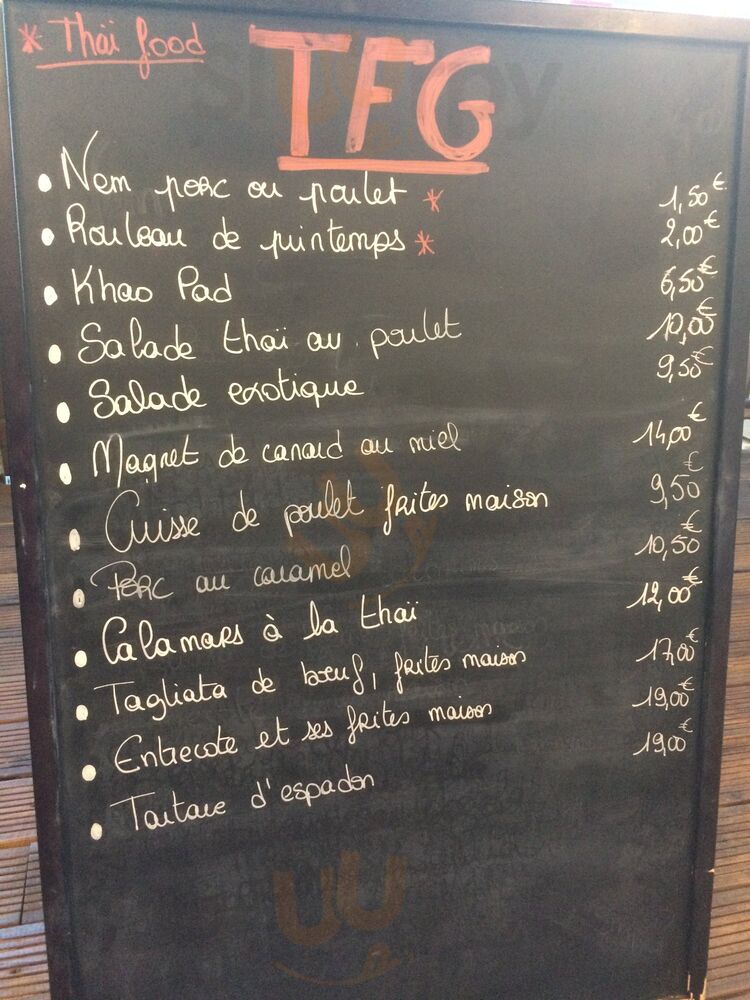 * Thaï food
TFG
• Nem porc ou poulet * 1,50€
• Rouleau de printemps * 2,00€
• Khao Pad 6,50€
• Salade thaï au poulet 10,00€
• Salade exotique 9,50€
• Magret de canard au miel 14,00€
• Cuisse de poulet frites maison 9,50€
• Porc au caramel 10,50€
• Calamars à la thaï 12,00€
• Tagliata de bœuf, frites maison 17,00€
• Entrecote et ses frites maison 19,00€
• Tartare d'espadon 19,00€